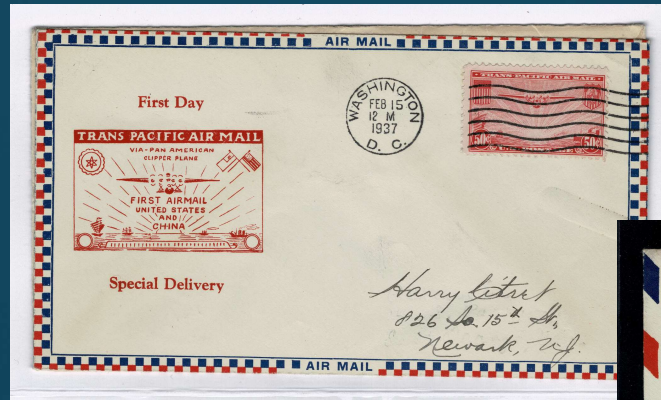 AIR MAIL
First Day
TRANS PACIFIC AIR MAIL
VIA-PAN AMERICAN
CLIPPER PLANE
FIRST AIRMAIL
UNITED STATES
AND
CHINA
Special Delivery
WASHINGTON
FEB 15
12 M
1937
D. C.
TRANS PACIFIC AIR MAIL
50¢ 50¢
Harry
826 So 15th St.,
Newark, N.J.
AIR MAIL